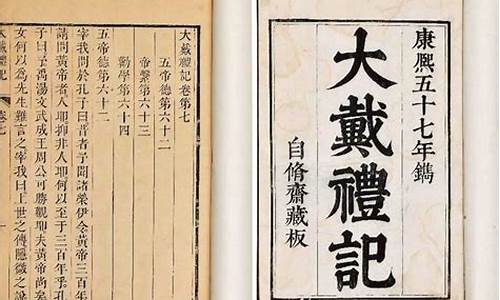 康熙五十七年鐫
大戴禮記
自脩齋藏板
大戴禮記卷第七
五帝德第六十二
帝繫第六十三
勸學第六十四
五帝德第六十二
宰我問於孔子曰昔者予聞諸榮伊令黃帝三百年
請問黃帝者人耶抑非人耶何以至于三百年乎孔
子曰予禹湯文武成王周公可勝觀耶夫黃帝尚矣
女何以為先生難言之宰我曰上世之傳隱微之
大戴禮記 卷七